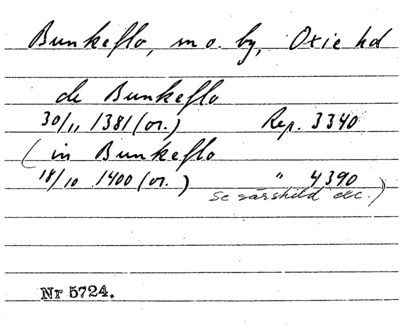 Bunkeflo, sn o. by, Oxie hd
de Bunkeflo
30/11 1381 (or.) Rep. 3340
(in Bunkeflo
18/10 1400 (or.) " 4390
se särskild exc.)
Nr 5724.